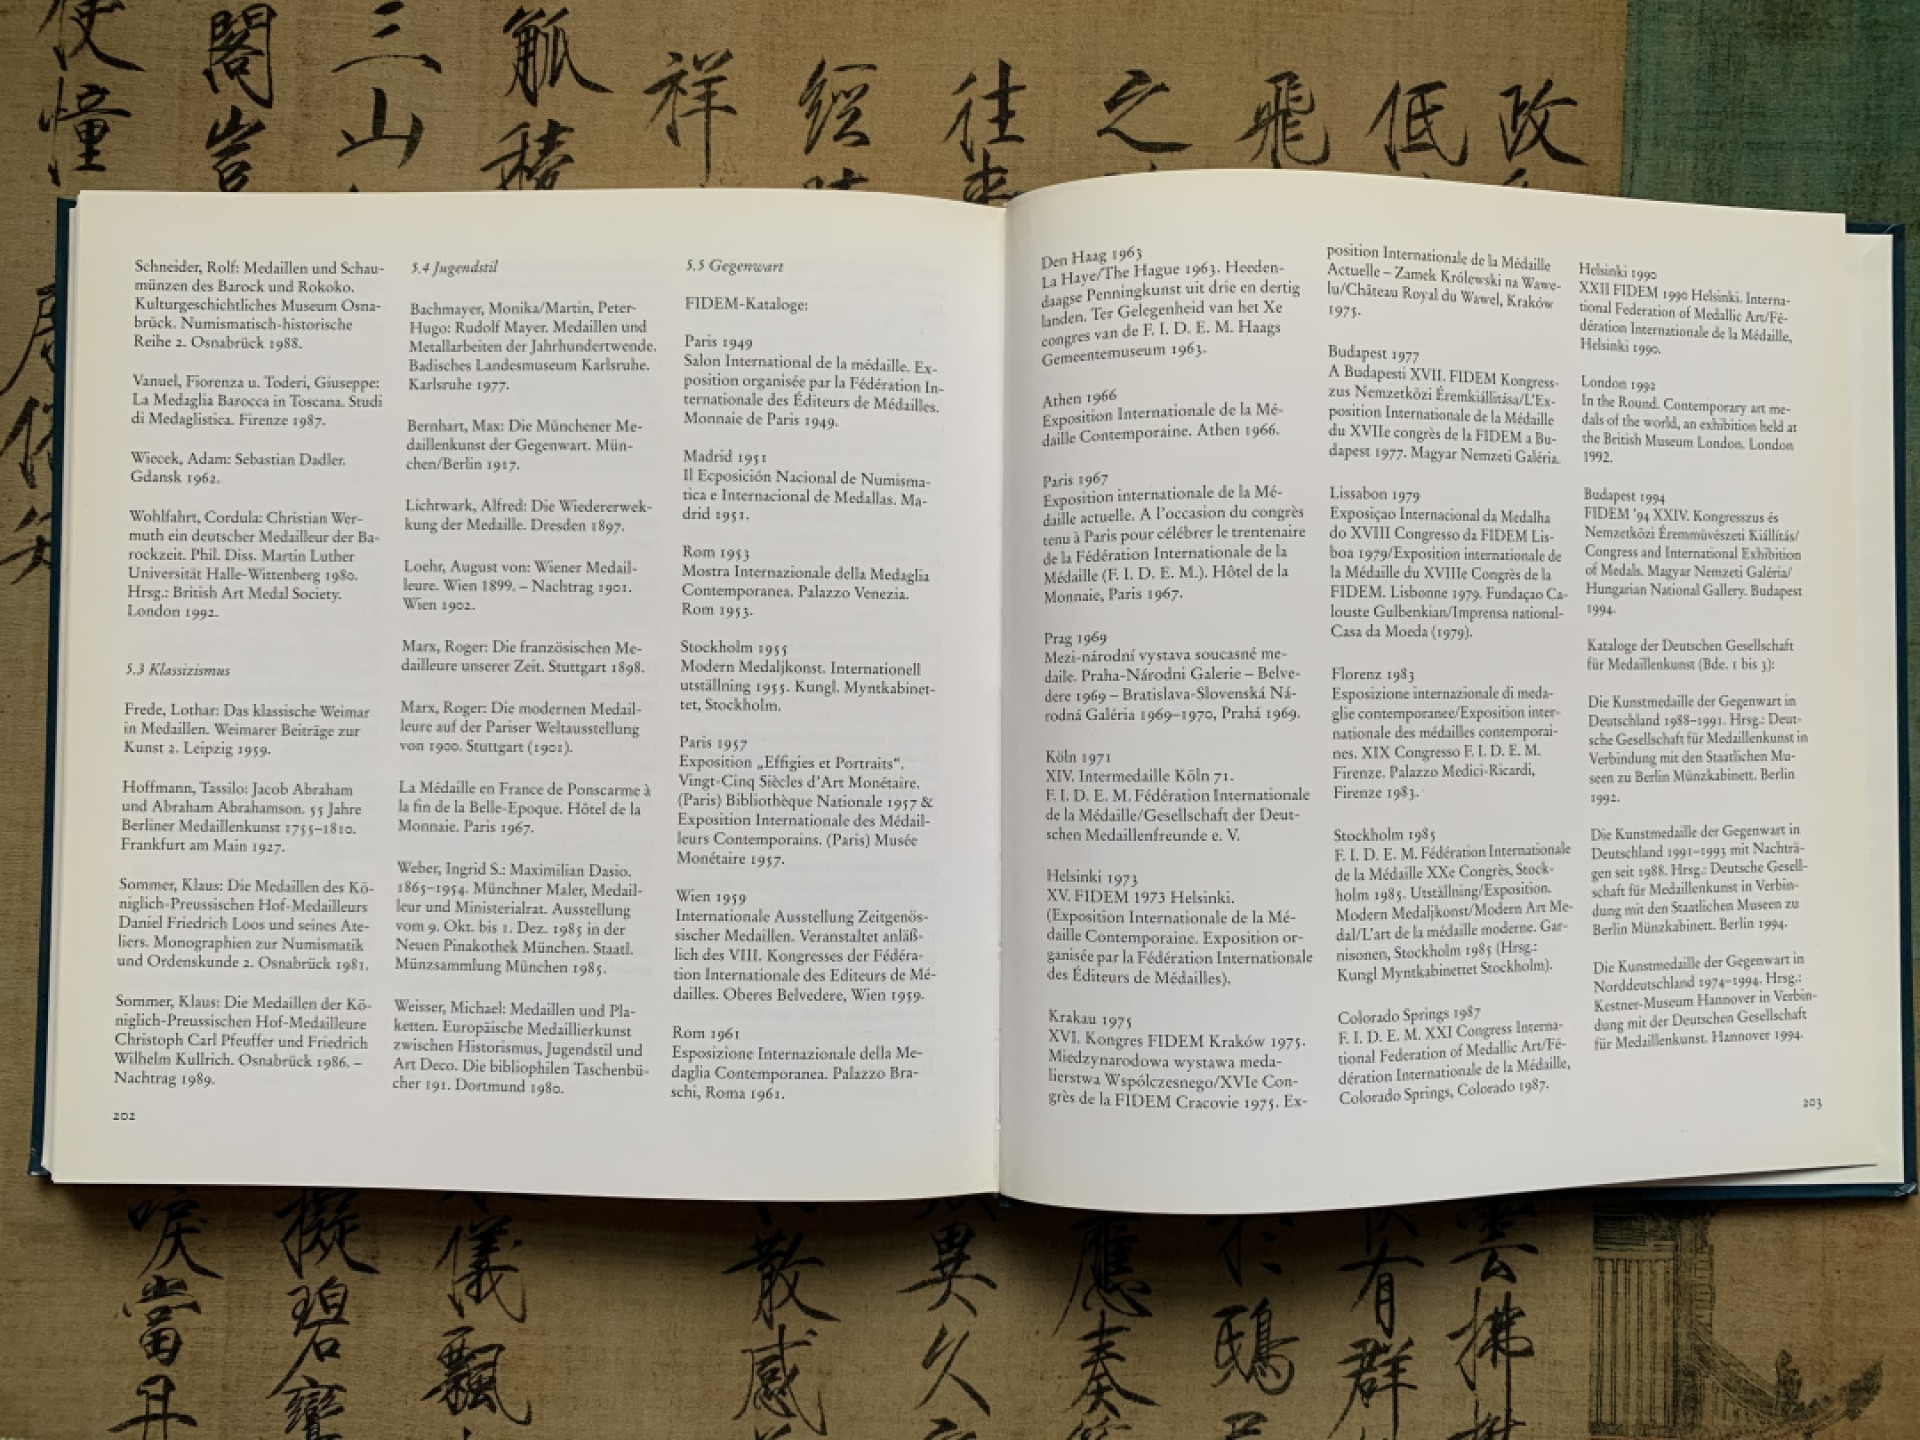 Schneider, Rolf: Medaillen und Schau-
münzen des Barock und Rokoko.
Kulturgeschichtliches Museum Osna-
brück. Numismatisch-historische
Reihe 2. Osnabrück 1988.
Vanuel, Fiorenza u. Toderi, Giuseppe:
La Medaglia Barocca in Toscana. Studi
di Medaglistica. Firenze 1987.
Wiecek, Adam: Sebastian Dadler.
Gdansk 1962.
Wohlfahrt, Cordula: Christian Wer-
muth ein deutscher Medailleur der Ba-
rockzeit. Phil. Diss. Martin Luther
Universität Halle-Wittenberg 1980.
Hrsg.: British Art Medal Society.
London 1992.
5.3 Klassizismus
Frede, Lothar: Das klassische Weimar
in Medaillen. Weimarer Beiträge zur
Kunst 2. Leipzig 1959.
Hoffmann, Tassilo: Jacob Abraham
und Abraham Abrahamson. 55 Jahre
Berliner Medaillenkunst 1755–1810.
Frankfurt am Main 1927.
Sommer, Klaus: Die Medaillen des Kö-
niglich-Preussischen Hof-Medailleurs
Daniel Friedrich Loos und seines Ate-
liers. Monographien zur Numismatik
und Ordenskunde 2. Osnabrück 1981.
Sommer, Klaus: Die Medaillen der Kö-
niglich-Preussischen Hof-Medailleure
Christoph Carl Pfeuffer und Friedrich
Wilhelm Kullrich. Osnabrück 1986. –
Nachtrag 1989.
202
5.4 Jugendstil
Bachmayer, Monika/Martin, Peter-
Hugo: Rudolf Mayer. Medaillen und
Metallarbeiten der Jahrhundertwende.
Badisches Landesmuseum Karlsruhe.
Karlsruhe 1977.
Bernhart, Max: Die Münchener Me-
daillenkunst der Gegenwart. Mün-
chen/Berlin 1917.
Lichtwark, Alfred: Die Wiedererwek-
kung der Medaille. Dresden 1897.
Loehr, August von: Wiener Medail-
leure. Wien 1899. – Nachtrag 1901.
Wien 1902.
Marx, Roger: Die französischen Me-
dailleure unserer Zeit. Stuttgart 1898.
Marx, Roger: Die modernen Medail-
leure auf der Pariser Weltausstellung
von 1900. Stuttgart (1901).
La Médaille en France de Ponscarme à
la fin de la Belle-Epoque. Hôtel de la
Monnaie. Paris 1967.
Weber, Ingrid S.: Maximilian Dasio.
1865–1954. Münchner Maler, Medail-
leur und Ministerialrat. Ausstellung
vom 9. Okt. bis 1. Dez. 1985 in der
Neuen Pinakothek München. Staatl.
Münzsammlung München 1985.
Weisser, Michael: Medaillen und Pla-
ketten. Europäische Medaillierkunst
zwischen Historismus, Jugendstil und
Art Deco. Die bibliophilen Taschenbü-
cher 191. Dortmund 1980.
5.5 Gegenwart
FIDEM-Kataloge:
Paris 1949
Salon International de la médaille. Ex-
position organisée par la Fédération In-
ternationale des Éditeurs de Médailles.
Monnaie de Paris 1949.
Madrid 1951
Il Ecposición Nacional de Numisma-
tica e Internacional de Medallas. Ma-
drid 1951.
Rom 1953
Mostra Internazionale della Medaglia
Contemporanea. Palazzo Venezia.
Rom 1953.
Stockholm 1955
Modern Medaljkonst. Internationell
utställning 1955. Kungl. Myntkabinet-
tet, Stockholm.
Paris 1957
Exposition „Effigies et Portraits“.
Vingt-Cinq Siècles d'Art Monétaire.
(Paris) Bibliothèque Nationale 1957 &
Exposition Internationale des Médail-
leurs Contemporains. (Paris) Musée
Monétaire 1957.
Wien 1959
Internationale Ausstellung Zeitgenös-
sischer Medaillen. Veranstaltet anläß-
lich des VIII. Kongresses der Fédéra-
tion Internationale des Editeurs de Mé-
dailles. Oberes Belvedere, Wien 1959.
Rom 1961
Esposizione Internazionale della Me-
daglia Contemporanea. Palazzo Bra-
schi, Roma 1961.
Den Haag 1963
La Haye/The Hague 1963. Heeden-
daagse Penningkunst uit drie en dertig
landen. Ter Gelegenheid van het Xe
congres van de F. I. D. E. M. Haags
Gemeentemuseum 1963.
Athen 1966
Exposition Internationale de la Mé-
daille Contemporaine. Athen 1966.
Paris 1967
Exposition internationale de la Mé-
daille actuelle. A l'occasion du congrès
tenu à Paris pour célébrer le trentenaire
de la Fédération Internationale de la
Médaille (F. I. D. E. M.). Hôtel de la
Monnaie, Paris 1967.
Prag 1969
Mezi-národní vystava soucasné me-
daile. Praha-Národni Galerie – Belve-
dere 1969 – Bratislava-Slovenská Ná-
rodná Galéria 1969–1970, Prahá 1969.
Köln 1971
XIV. Intermedaille Köln 71.
F. I. D. E. M. Fédération Internationale
de la Médaille/Gesellschaft der Deut-
schen Medaillenfreunde e. V.
Helsinki 1973
XV. FIDEM 1973 Helsinki.
(Exposition Internationale de la Mé-
daille Contemporaine. Exposition or-
ganisée par la Fédération Internationale
des Éditeurs de Médailles).
Krakau 1975
XVI. Kongres FIDEM Kraków 1975.
Miedzynarodowa wystawa meda-
lierstwa Wspólczesnego/XVIe Con-
grès de la FIDEM Cracovie 1975. Ex-
position Internationale de la Médaille
Actuelle – Zamek Królewski na Wawe-
lu/Château Royal du Wawel, Kraków
1975.
Budapest 1977
A Budapesti XVII. FIDEM Kongress-
zus Nemzetközi Éremkiállitása/L'Ex-
position Internationale de la Médaille
du XVIIe congrès de la FIDEM a Bu-
dapest 1977. Magyar Nemzeti Galéria.
Lissabon 1979
Exposiçao Internacional da Medalha
do XVIII Congresso da FIDEM Lis-
boa 1979/Exposition internationale de
la Médaille du XVIIIe Congrès de la
FIDEM. Lisbonne 1979. Fundaçao Ca-
louste Gulbenkian/Imprensa national-
Casa da Moeda (1979).
Florenz 1983
Esposizione internazionale di meda-
glie contemporanee/Exposition inter-
nationale des médailles contemporai-
nes. XIX Congresso F. I. D. E. M.
Firenze. Palazzo Medici-Ricardi,
Firenze 1983.
Stockholm 1985
F. I. D. E. M. Fédération Internationale
de la Médaille XXe Congrès, Stock-
holm 1985. Utställning/Exposition.
Modern Medaljkonst/Modern Art Me-
dal/L'art de la médaille moderne. Gar-
nisonen, Stockholm 1985 (Hrsg.:
Kungl Myntkabinettet Stockholm).
Colorado Springs 1987
F. I. D. E. M. XXI Congress Interna-
tional Federation of Medallic Art/Fé-
dération Internationale de la Médaille,
Colorado Springs, Colorado 1987.
Helsinki 1990
XXII FIDEM 1990 Helsinki. Interna-
tional Federation of Medallic Art/Fé-
dération Internationale de la Médaille,
Helsinki 1990.
London 1992
In the Round. Contemporary art me-
dals of the world, an exhibition held at
the British Museum London. London
1992.
Budapest 1994
FIDEM '94 XXIV. Kongresszus és
Nemzetközi Éremmüvészeti Kiállítás/
Congress and International Exhibition
of Medals. Magyar Nemzeti Galéria/
Hungarian National Gallery. Budapest
1994.
Kataloge der Deutschen Gesellschaft
für Medaillenkunst (Bde. 1 bis 3):
Die Kunstmedaille der Gegenwart in
Deutschland 1988–1991. Hrsg.: Deut-
sche Gesellschaft für Medaillenkunst in
Verbindung mit den Staatlichen Mu-
seen zu Berlin Münzkabinett. Berlin
1992.
Die Kunstmedaille der Gegenwart in
Deutschland 1991–1993 mit Nachträ-
gen seit 1988. Hrsg.: Deutsche Gesell-
schaft für Medaillenkunst in Verbin-
dung mit den Staatlichen Museen zu
Berlin Münzkabinett. Berlin 1994.
Die Kunstmedaille der Gegenwart in
Norddeutschland 1974–1994. Hrsg.:
Kestner-Museum Hannover in Verbin-
dung mit der Deutschen Gesellschaft
für Medaillenkunst. Hannover 1994.
203
改
低
飛
之
往來
經
祥
觚稜
三山
閣岩
使憧
雲拂
有群
於鴟
應奏
異久
散感
儀飄
擬碧鸞
唳當丹